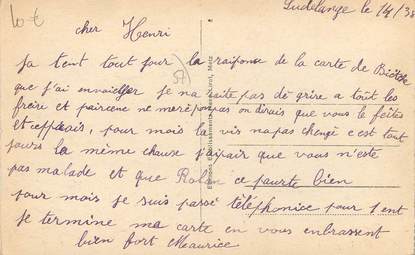 10 €
Ludelange le 1/4/38
cher Henri
Ja tent tout jour la raiponse de la carte de Bictche
que j'ai envoiller je na raite pas de crire a tout les
freire et pairsone ne merèponpas on dirais que vous le feites
et cppais, pour mois la vis na pas changé c'est tout
jours la même chause j'aipair que vous n'ete
pas malade et que Robin ce paurte bien
pour mois je suis passé télèphonice pour 1 ent
Je termine ma carte en vous enbrassent
bien fort Maurice
57